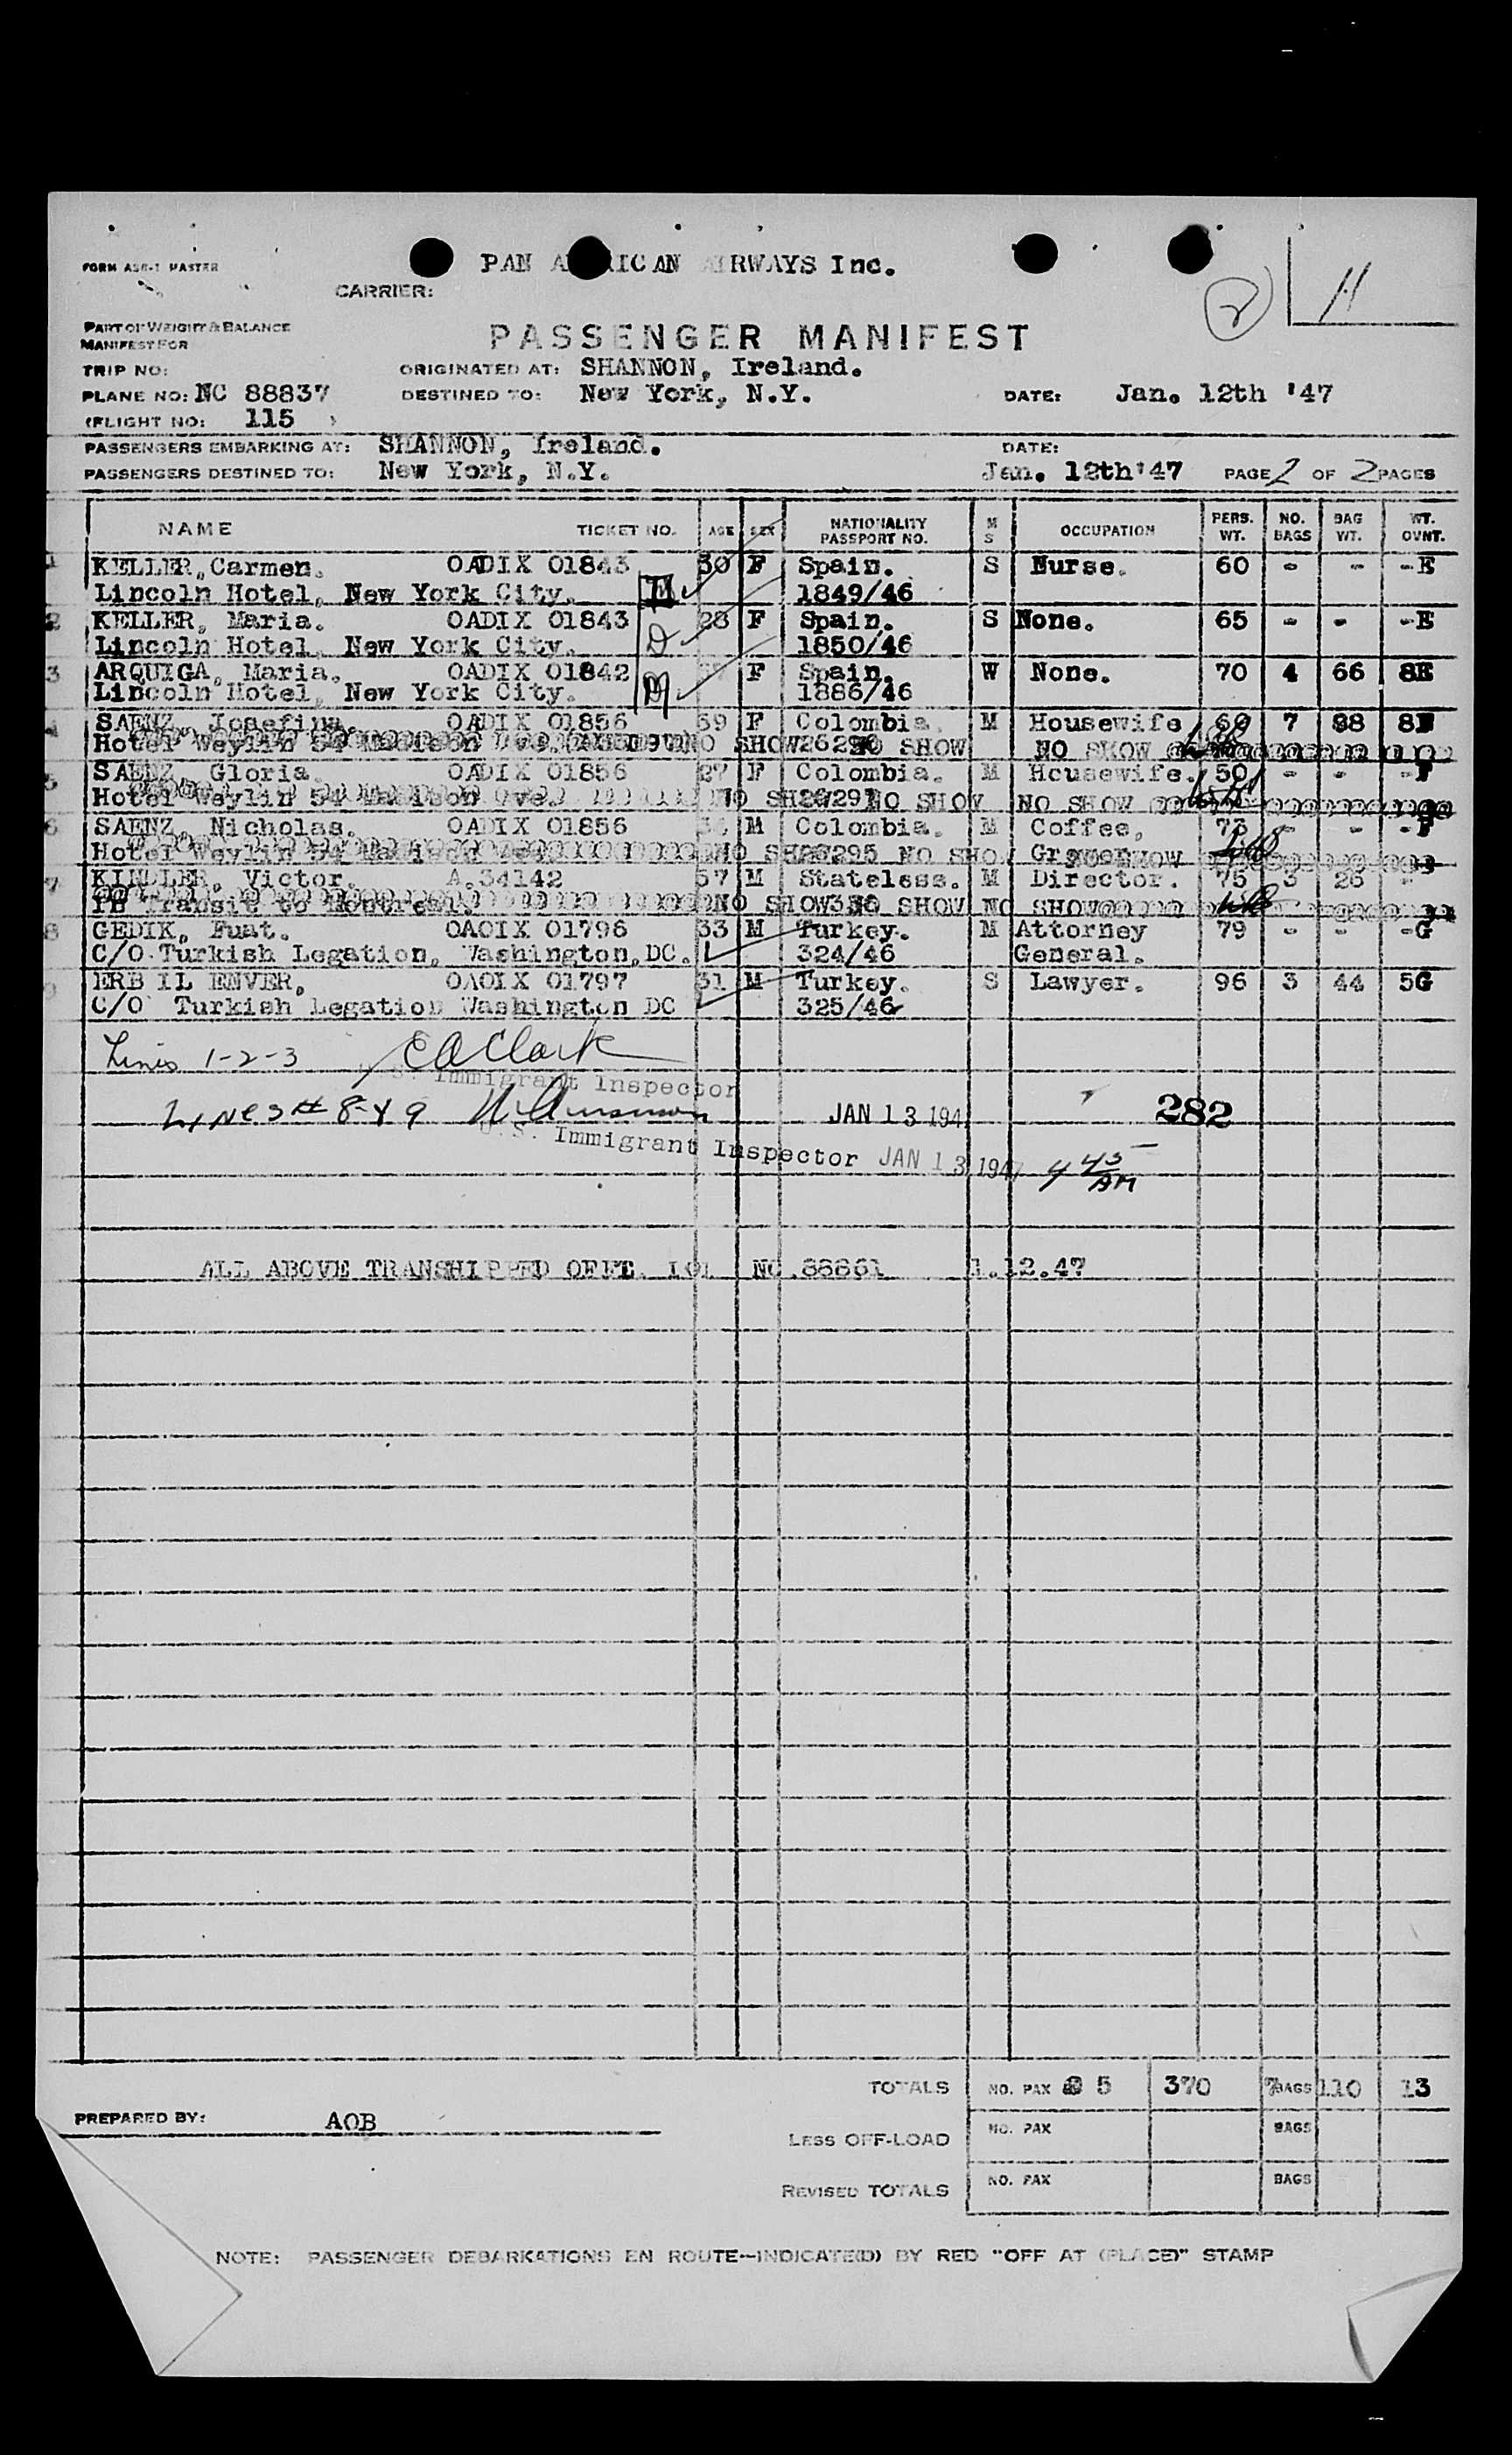 FORM ASR-1 MASTER
PAN A RICAN IRWAYS Inc.
CARRIER:
2 11
PART OF WEIGHT & BALANCE
MANIFEST FOR
PASSENGER MANIFEST
TRIP NO: ORIGINATED AT: SHANNON, Ireland.
PLANE NO: NC 88837 DESTINED TO: New York, N.Y. DATE: Jan. 12th '47
(FLIGHT NO: 115 )
PASSENGERS EMBARKING AT: SHANNON, Ireland. DATE:
PASSENGERS DESTINED TO: New York, N.Y. Jan. 12th'47 PAGE 2 OF 2 PAGES
NAME TICKET NO. AGE SEX NATIONALITY PASSPORT NO. M S OCCUPATION PERS. WT. NO. BAGS BAG WT. WT. OVNT.
1 KELLER, Carmen. OADIX 01843 30 F Spain. S Nurse. 60 - - -E
Lincoln Hotel, New York City. 1849/46
2 KELLER, Maria. OADIX 01843 28 F Spain. S None. 65 - - -E
Lincoln Hotel, New York City. D 1850/46
3 ARQUIGA, Maria. OADIX 01842 F Spain. W None. 70 4 66 8E
Lincoln Hotel, New York City. 1886/46
4 SAENZ, Josefina. OADIX 01856 59 F Colombia. M Housewife. 60 7 98 8F
Hotel Weylin 54 Madison NO SHOW NO SHOW NO SHOW
5 SAENZ, Gloria. OADIX 01856 27 F Colombia. M Housewife. 50 - - -F
Hotel Weylin 54 Madison Ave. NO SHOW NO SHOW
6 SAENZ, Nicholas. OADIX 01856 M Colombia. M Coffee, 73 - - -F
Hotel Weylin 54 Madison Ave. 26295 NO SHOW Grower.
7 KINDLER, Victor. A.34142 57 M Stateless. M Director. 75 3 26 -
Transit to Montreal. NO SHOW NO SHOW NO SHOW
8 GEDIK, Fuat. OAOIX 01796 33 M Turkey. M Attorney 79 - - -G
C/O Turkish Legation, Washington, DC. 324/46 General.
9 ERB IL ENVER, OAOIX 01797 31 M Turkey. S Lawyer. 96 3 44 5G
C/O Turkish Legation Washington DC 325/46
Lines 1-2-3 C A Clark
U.S. Immigrant Inspector
Lines # 8-&9 JAN 13 194 282
U.S. Immigrant Inspector JAN 13 1947 4 45 AM
ALL ABOVE TRANSHIPPED OFFT. 101 NC.88861 1.12.47
TOTALS NO. PAX 5 370 7 BAGS 110 13
PREPARED BY: AOB
LESS OFF-LOAD NO. PAX BAGS
REVISED TOTALS NO. PAX BAGS
NOTE: PASSENGER DEBARKATIONS EN ROUTE-INDICATE(D) BY RED "OFF AT (PLACE)" STAMP